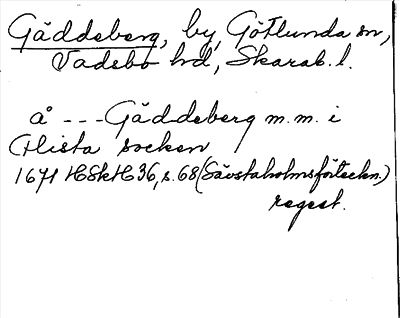 Gäddeberg, by, Götlunda sn,
Vadsbo hd, Skarab. l.
å --- Gäddeberg m.m. i
Hista socken
1671 HSkH 36, s. 68 (Sävstaholmsförteckn.)
regest.